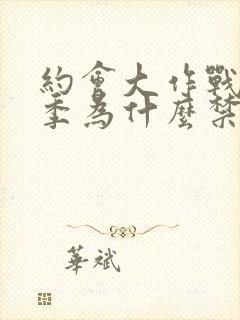 約會大作戰
季為什麼禁
華斌